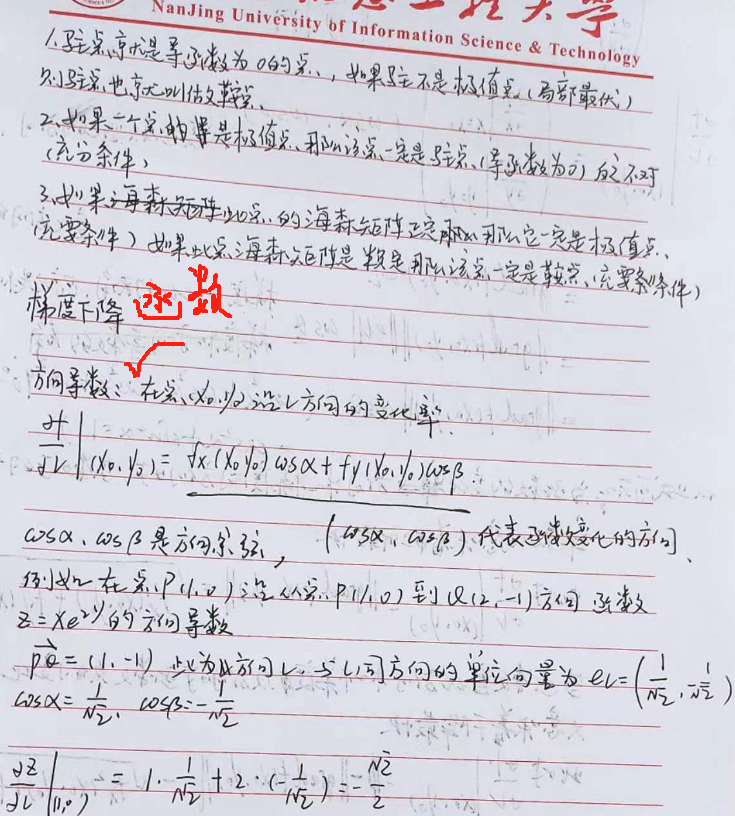 NanJing University of Information Science & Technology
1.驻点京尤是导函数为0的点,如果驻点不是极值点(局部最优)
则驻点也京尤叫做鞍点、
2、如果一个点是极值点、那么该点一定是驻点、(导函数为0)反之不对
(充分条件)
3、如果此点的海森矩阵正定那么它一定是极值点、
(充要条件) 如果此点海森矩阵是 定那么该点一定是鞍点、(充要条件)
梯度下降 函数
方向导数: 在点(x₀,y₀)沿l方向的变化率.
∂f/∂l|(x₀,y₀) = fx(x₀y₀)cosα+fy(x₀,y₀)cosβ.
cosα、cosβ是方向余弦, (cosα,cosβ)代表函数变化的方向、
例如在点P(1,0)沿从点P(1,0)到Q(2,-1)方向函数
z=xe^2y的方向导数
PQ=(1,-1) 此为方向l、与l同方向的单位向量为el=(1/√2,-1/√2)
cosα=1/√2, cosβ=-1/√2
∂z/∂l|(1,0) = 1·1/√2+2·(-1/√2)=-√2/2